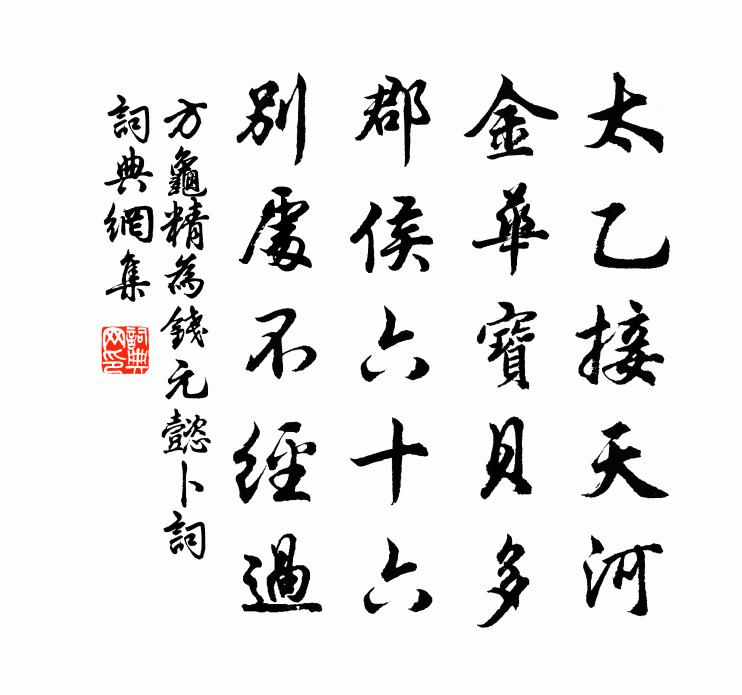 太乙接天河
金華寶貝多
郡侯六十六
別處不經過
方龜精為錢元懿卜詞
詞典網集
詞典网印